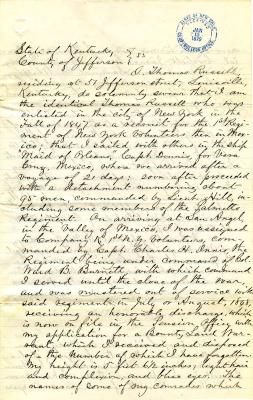 State of Kentucky } ss
County of Jefferson }
I, Thomas Russell,
residing at 51 Jefferson street, Louisville
Kentucky, do solemnly swear that I am
the identical Thomas Russell who was
enlisted in the city of New York in the
fall of 1847, as a recruit for the 1st Regi-
ment of New York Volunteers then in Mex-
ico; that I sailed with others in the ship
Maid of Orleans, Capt Dennis, for Vera
Cruz, Mexico, where we arrived after a
voyage of 21 days; soon after proceeded
with a detachment numbering about
95 men, commanded by Lieut. Hill, in-
cluding some men of the Palmetto
Regiment. On arriving at San Angel,
in the Valley of Mexico, I was assigned
to Company K 1st N.Y. Volunteers, com-
manded by Capt Charles H. Pearson, the
Regiment being under command of Col.
Ward B. Burnett, with which command
I served until the close of the war,
and was mustered out of service with
said regiment in July or August, 1848,
receiving an honorable discharge, which
is now on file in the Pension office, with
my application for a Bounty Land War-
rant, which I received and disposed
of & the Number of which I have forgotten.
My height is 5 feet 6½ inches, light hair
and complexion, and blue eyes. The
names of some of my comrades which